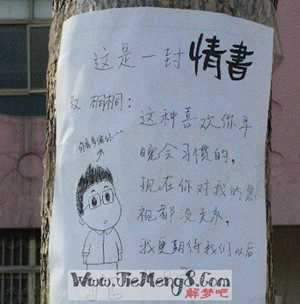 这是一封情書
桐：
这种喜欢你早
晚会习惯的，
现在你对我的忽
视都没关系，
我更期待我们以后
Www.JieMeng8.Com
解梦吧